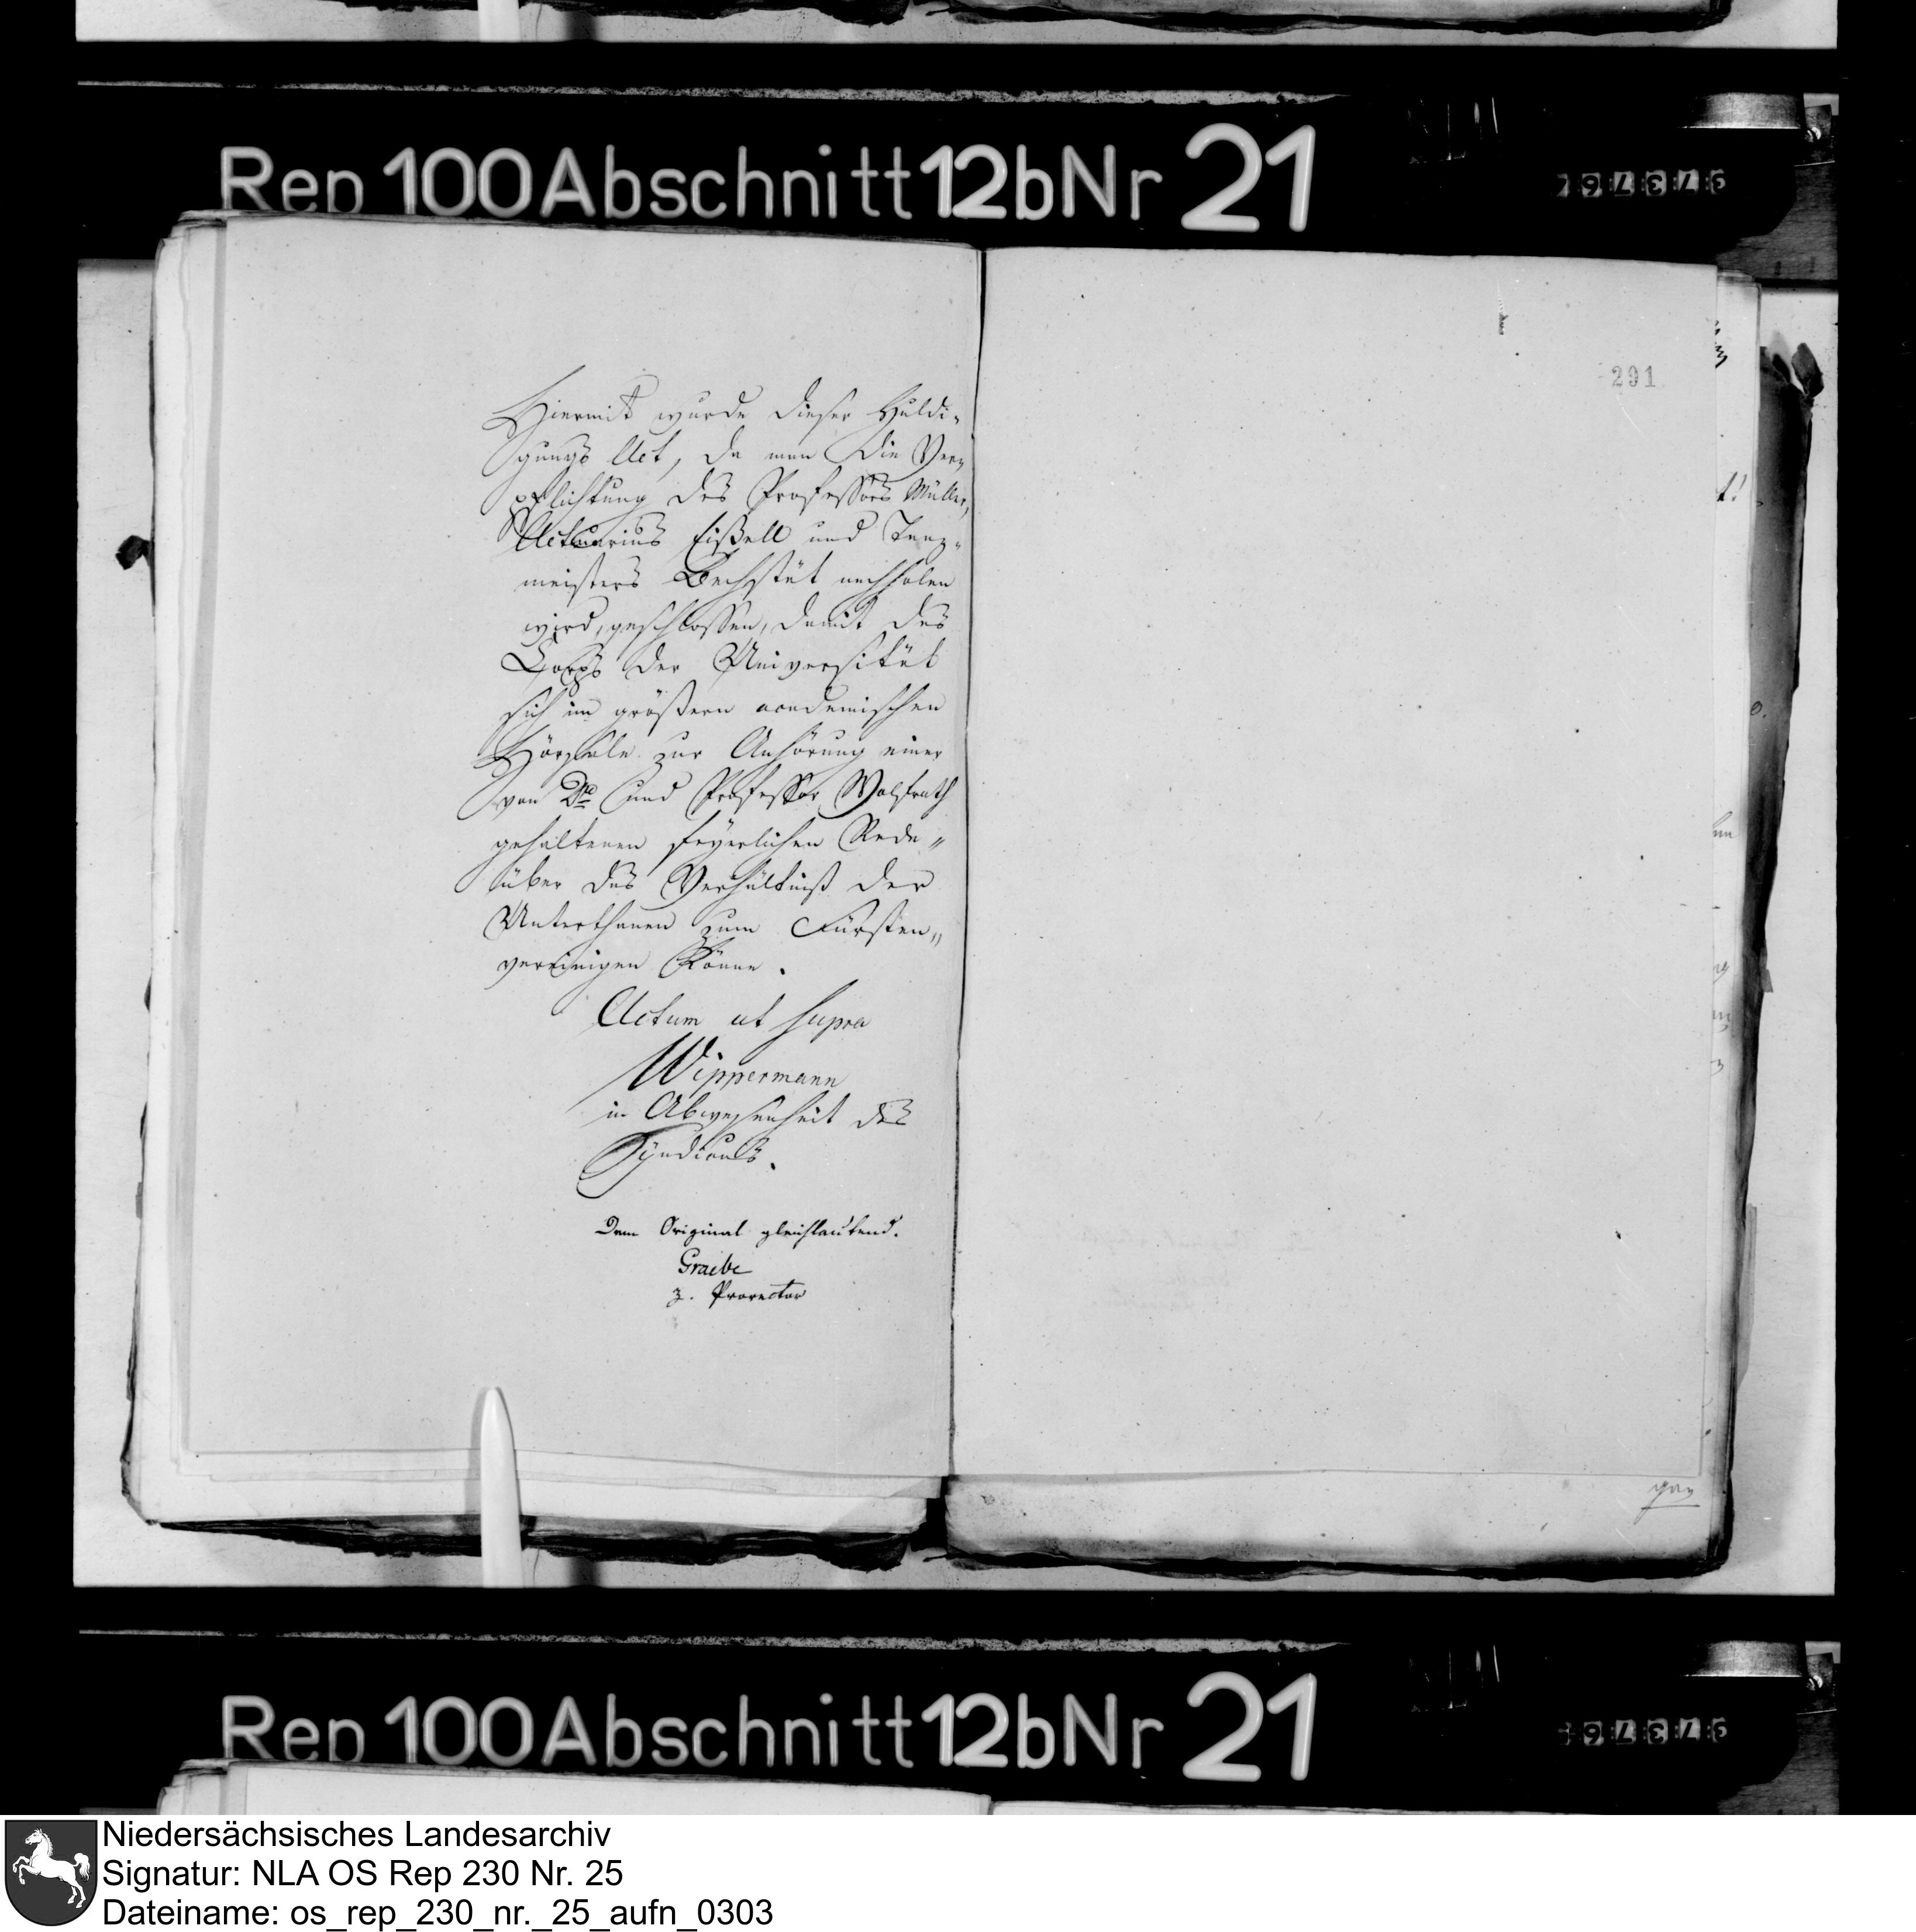 Rep 100 Abschnitt 12b Nr 21
291
Hiermit wurde dieser Huldi-
gungs Act, da man die Ver-
pflichtung des Professors Müller,
Actuarius Eißell und Tanz-
meisters Bechstät nachholen
wird, geschlossen, damit das
Corps der Universität
sich im größern academischen
Hörsale zur Anhörung einer
von Dr. und Professor Wolfrath
gehaltenen feyerlichen Rede
über das Verhältniß der
Unterthanen zum Fürsten
vereinigen könne.
Actum ut supra
Wippermann
in Abwesenheit des
Syndicus.
Dem Original gleichlautend.
Graebe
z. Prorector
Rep 100 Abschnitt 12b Nr 21
Niedersächsisches Landesarchiv
Signatur: NLA OS Rep 230 Nr. 25
Dateiname: os_rep_230_nr._25_aufn_0303